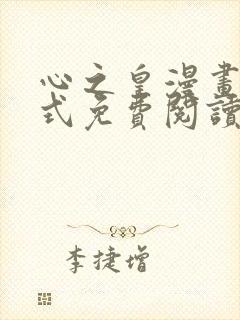 心之皇漫畫
式免費閱讀
李捷增